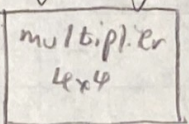 multiplier
4x4